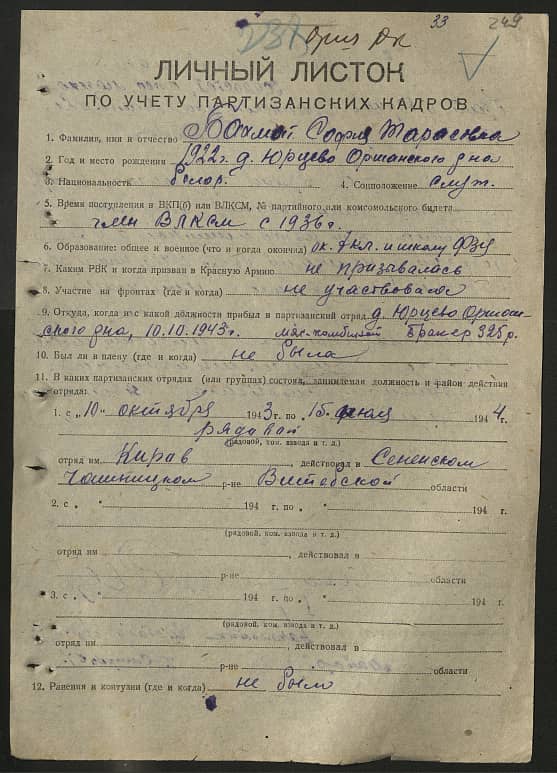 33 249
ЛИЧНЫЙ ЛИСТОК
ПО УЧЕТУ ПАРТИЗАНСКИХ КАДРОВ
1. Фамилия, имя и отчество Бохмат София Тарасовна
2. Год и место рождения 1922г. д. Юрцево Оршанского р-на
3. Национальность белор. 4. Соцположение служ.
5. Время поступления в ВКП(б) или ВЛКСМ, № партийного или комсомольского билета
член ВЛКСМ с 1936г.
6. Образование: общее и военное (что и когда окончил) ок. 7 кл. и школу ФЗУ
7. Каким РВК и когда призван в Красную Армию не призывалась
8. Участие на фронтах (где и когда) не участвовала
9. Откуда, когда и с какой должности прибыл в партизанский отряд д. Юрцево Оршан-
ского р-на, 10.10.1943г. бракер 325р.
10. Был ли в плену (где и когда) не была
11. В каких партизанских отрядах (или группах) состоял, занимаемая должность и район действия
отряда:
1. с „10" октября 1943г. по „15" июля 1944г.
Рядовой
(рядовой, ком. взвода и т. д.)
отряд им. Кирав, действовал в Сененском
Чашницком р-не Витебской области
2. с „ " 194 г. по „ " 194 г.
(рядовой, ком. взвода и т. д.)
отряд им , действовал в
р-не области
3. с „ " 194 г. по „ " 194 г.
(рядовой, ком. взвода и т. д.)
отряд им. , действовал в
р-не области
12. Ранения и контузии (где и когда) не было